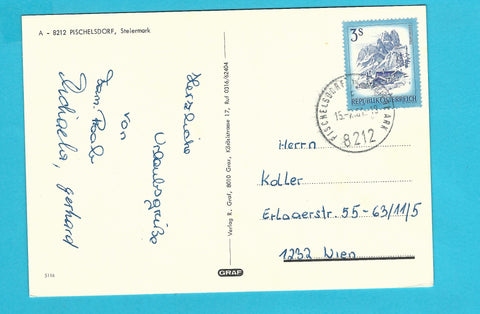 A - 8212 PISCHELSDORF, Steiermark
Herzliche
Urlaubsgrüße
von
Fam.
Michaela, Gerhard
Verlag R. Graf, 8010 Graz, Klöblstrasse 17, Ruf 0316/62404
5116
GRAF
3S
REPUBLIK ÖSTERREICH
PISCHELSDORF
8212
Herrn
Koller
Erlaaerstr. 55-63/11/5
1232 Wien